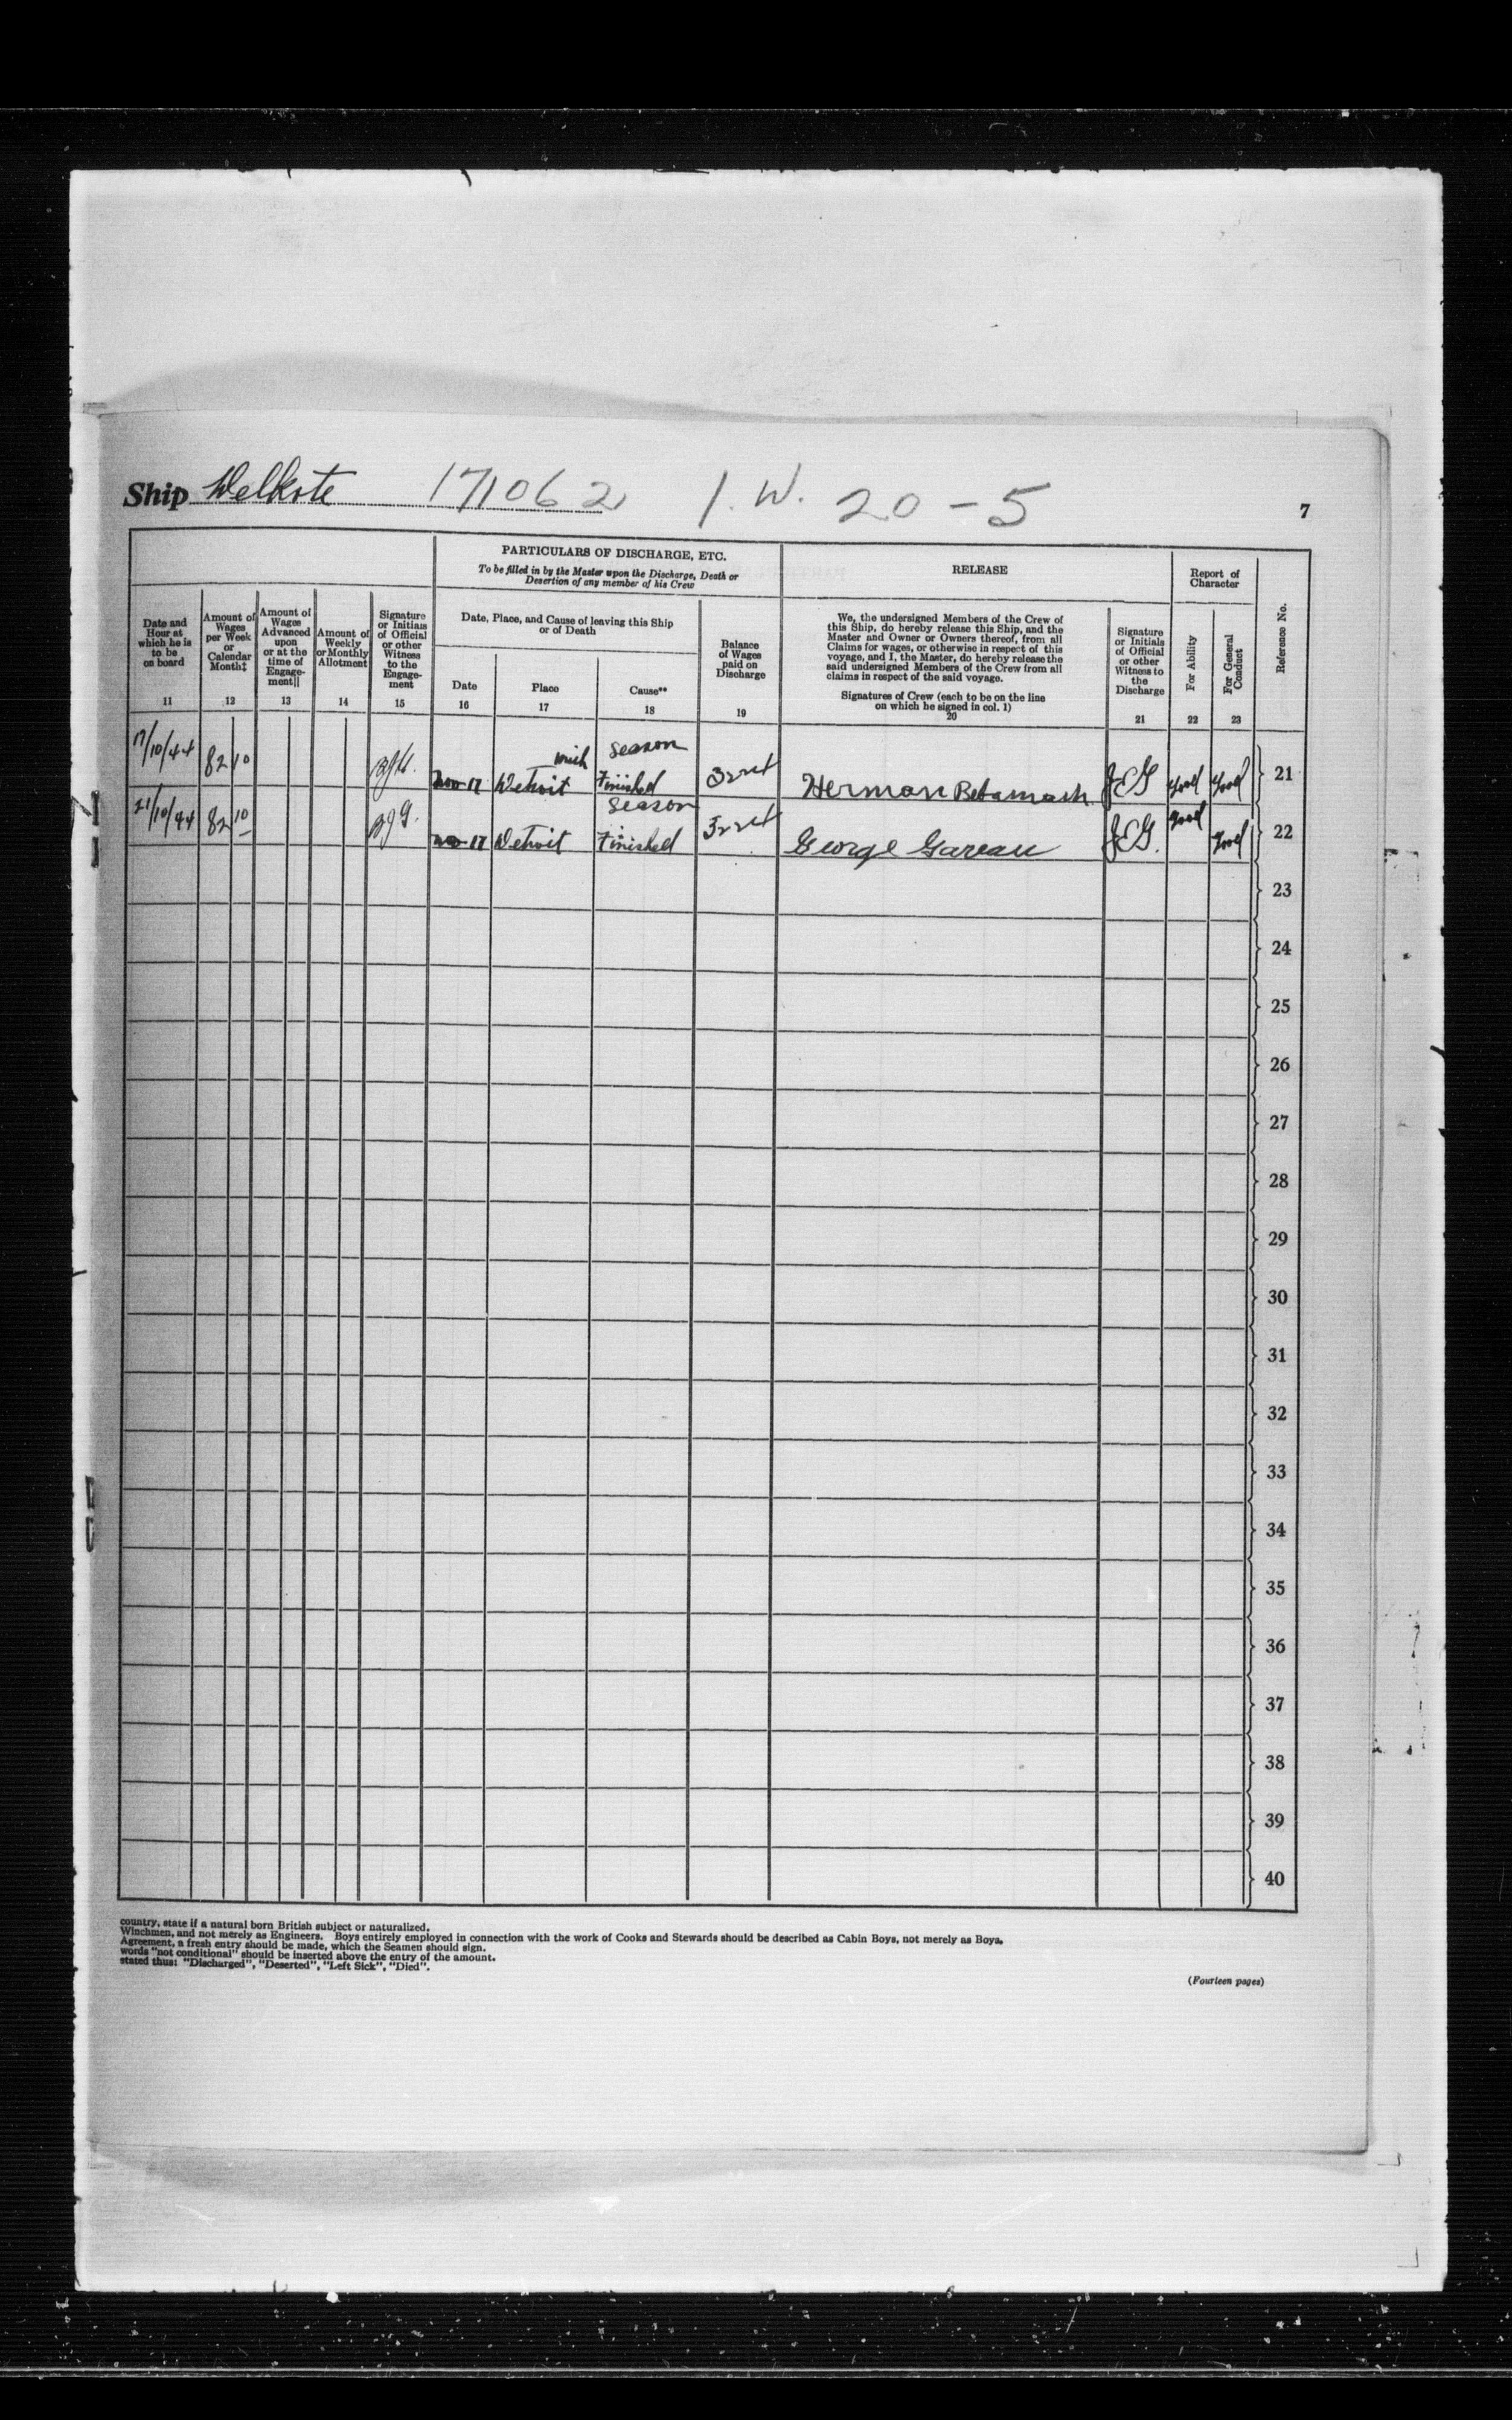 Ship Welkite 171062 I. W. 20-5
7
PARTICULARS OF DISCHARGE, ETC.
To be filled in by the Master upon the Discharge, Death or
Desertion of any member of his Crew
RELEASE
Report of
Character
Reference No.
Date and
Hour at
which he is
to be
on board
11
Amount of
Wages
per Week
or
Calendar
Month‡
12
Amount of
Wages
Advanced
upon
or at the
time of
Engage-
ment||
13
Amount of
Weekly
or Monthly
Allotment
14
Signature
or Initials
of Official
or other
Witness
to the
Engage-
ment
15
Date, Place, and Cause of leaving this Ship
or of Death
Date
16
Place
17
Cause**
18
Balance
of Wages
paid on
Discharge
19
We, the undersigned Members of the Crew of
this Ship, do hereby release this Ship, and the
Master and Owner or Owners thereof, from all
Claims for wages, or otherwise in respect of this
voyage, and I, the Master, do hereby release the
said undersigned Members of the Crew from all
claims in respect of the said voyage.
Signatures of Crew (each to be on the line
on which he signed in col. 1)
20
Signature
or Initials
of Official
or other
Witness to
the
Discharge
21
For Ability
22
For General
Conduct
23
17/10/44 82 10 Nov 17 Detroit Mich Season Finished Herman Betamash JEG Good Good 21
21/10/44 82 10 Nov 17 Detroit Season Finished George Gareau JEG. Good Good 22
23
24
25
26
27
28
29
30
31
32
33
34
35
36
37
38
39
40
country, state if a natural born British subject or naturalized.
Winchmen, and not merely as Engineers. Boys entirely employed in connection with the work of Cooks and Stewards should be described as Cabin Boys, not merely as Boys.
Agreement, a fresh entry should be made, which the Seamen should sign.
words "not conditional" should be inserted above the entry of the amount.
stated thus: "Discharged", "Deserted", "Left Sick", "Died".
(Fourteen pages)